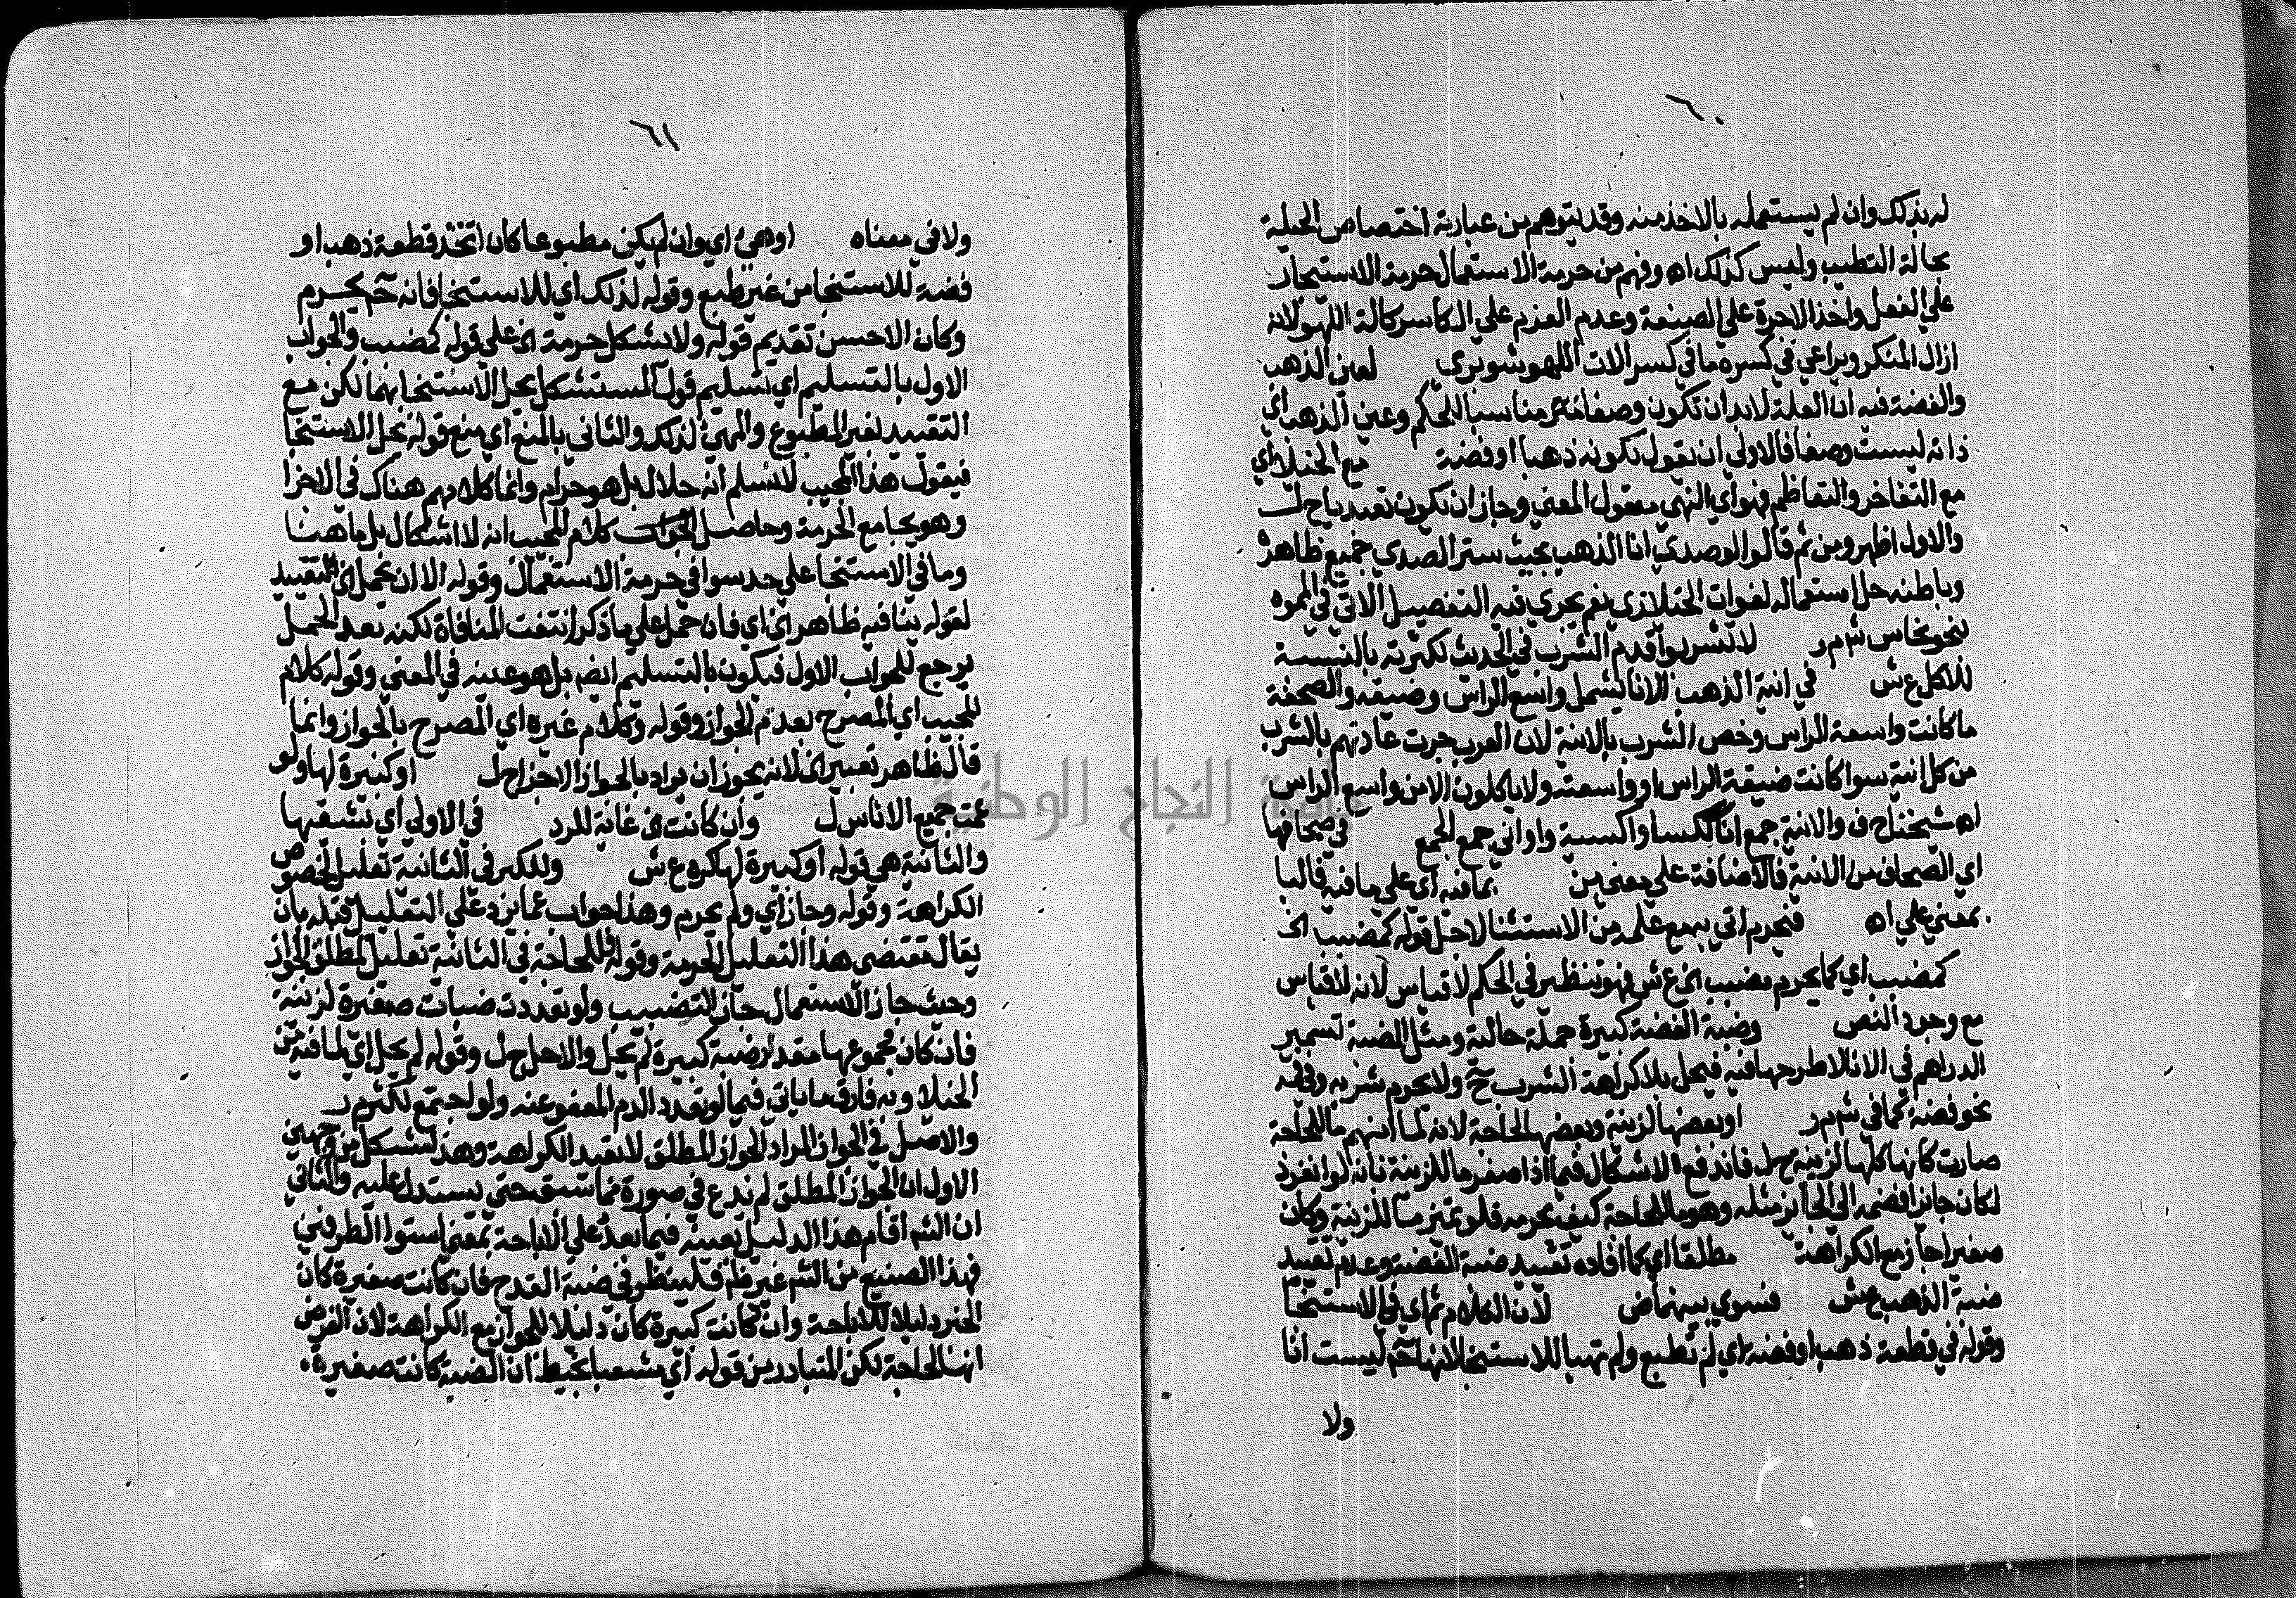 ٦٠
له بذلك وان لم يستعمله بالاخذ منه وقد يتوهم من عبارته اختصاص الحيلة
بحالة التطيب وليس كذلك اه وفهم من حرمة الاستعمال حرمة الاستيجار
على الفعل واخذ الاجرة على الصنعة وعدم الغرم على الكاسر كالة اللهو لانه
ازال المنكر ويراعي في كسره ما في كسر الات اللهو شوبري لعين الذهب
والفضة فيه ان العلة لابد ان تكون وصفا مناسبا للحكم وعين الذهب اي
ذاته ليست وصفا فالاولى ان يقول لكونه ذهبا او فضة مع الخيلا اي
مع التفاخر والتعاظم فهو اي النهي معقول المعني وجاز ان تكون تعبديا ح ل
والاول اظهر ومن ثم قالوا لو صدي انا الذهب بحيث ستر الصدي جميع ظاهره
وباطنه حل استعماله لفوات الخيلا زي نعم يجري فيه التفصيل الاتي في المموه
بنحو نحاس ش م ر لا تشربوا قدم الشرب في الحديث لكثرته بالنسبة
للاكل ع ش في انية الذهب الانا يشمل واسع الراس وضيقه والصحفة
ما كانت واسعة الراس وخص الشرب بالانية لان العرب جرت عادتهم بالشرب
من كل انية سوا كانت ضيقة الراس او واسعته ولا ياكلون الا من واسع الراس
اه شيخنا ح ف والانية جمع انا ككسا واكسية واواني جمع الجمع في صحافها
اي الصحاف من الانية فالاضافة على معنى من بما فيه اي على ما فيه فالبا
بمعني علي اه فيحرم اتي به مع علمه من الاستثنا لاجل قوله كمضبب الخ
كمضبب اي كما يحرم مضبب الخ ع ش فهو تنظير في الحكم لا قياس لانه لا قياس
مع وجود النص وضبة الفضة كبيرة جملة حالية ومثل الضبة تسمير
الدراهم في الانا لا طرحها فيه فيحل بلا كراهة الشرب ح ولا يحرم شربه وفي فمه
نحو فضة كما في ش م ر او بعضها لزينة وبعضها لحاجة لانه لما انبهم ما للحاجة
صارت كانها كلها لزينة ح ل فاندفع الاشكال فيما اذا صغر ما للزينة فانه لو انفرد
لكان جائزا فضمه الى الجائز مثله وهو ما للحاجة كيف يحرمه فلو تميز ما للزينة وكان
صغيرا جاز مع الكراهة مطلقا اي كما افاده تقييد ضبة الفضة وعدم تقييد
ضبة الذهب ع ش فسوي بينهما ض لان الكلام ثم اي في الاستنجا
وقوله في قطعة ذهب او فضة اي لم تطبع ولم تهيا للاستنجا لانها ح ليست انا
ولا
٦١
ولا في معناه او هيئ اي وان لم يكن مطبوعا كان اتخذ قطعة ذهب او
فضة للاستنجا من غير طبع وقوله لذلك اي للاستنجا فانه ح يحرم
وكان الاحسن تقديم قوله ولا يشكل حرمة الخ على قوله كمضبب والجواب
الاول بالتسليم اي تسليم قول المستشكل يحل الاستنجا بهما لكن مع
التقييد لغير المطبوع والمهيئ لذلك والثاني بالمنع اي منع قوله يحل الاستنجا
فيقول هذا المجيب لا نسلم انه حلال بل هو حرام وانما كلامهم هناك في الاجزا
وهو يجامع الحرمة وحاصل الجواب كلام المجيب انه لا اشكال بل ما هنا
وما في الاستنجا على حد سوا في حرمة الاستعمال وقوله الا ان يحمل الخ التقييد
لقوله ينافيه ظاهر الخ اي فان حمل على ما ذكر انتفت المنافاة لكنه بعد الحمل
يرجع للجواب الاول فيكون بالتسليم ايض بل هو عينه في المعني وقوله كلام
المجيب اي المصرح بعدم الجواز وقوله وكلام غيره اي المصرح بالجواز وانما
قال ظاهر تعبير الخ لانه يجوز ان يراد بالجواز الاجزا ح ل او كبيرة لها ولو
عمت جميع الانا س ل وان كانت في غاية للرد في الاولى اي بشقيها
والثانية هي قوله او كبيرة لها كره ع ش وللكبر في الثانية تعليل لخصوص
الكراهة وقوله وجاز اي ولم يحرم وهذا جواب عما يرد على التعليل قبله بان
يقال مقتضى هذا التعليل الحرمة وقوله للحاجة في الثانية تعليل لمطلق الجواز
وحيث جاز الاستعمال جاز التضبيب ولو تعددت ضبات صغيرة لزينة
فان كان مجموعها مقدار ضبة كبيرة لم تحل والا حل ح ل وقوله لم يحل اي لما فيه من
الخيلا وبه فارق ما ياتي فيما لو تعدد الدم المعفو عنه ولو اجتمع لكثر م ر
والاصل في الجواز المراد الجواز المطلق لا بقيد الكراهة وهذا يشكل من وجهين
الاول ان الجواز المطلق لم يدع في صورة مما سبق حتى يستدل عليه والثاني
ان الشم اقام هذا الدليل بعينه فيما بعد على الاباحة بمعنى استوا الطرفين
فهذا الصنيع من الشم غير ظم فلينظر في ضبة القدح فان كانت صغيرة كان
الخبر دليلا للاباحة وان كانت كبيرة كان دليلا للجواز مع الكراهة لان الفرض
انها لحاجة لكن المتبادر من قوله اي مشعبا بخيط ان الضبة كانت صغيرة